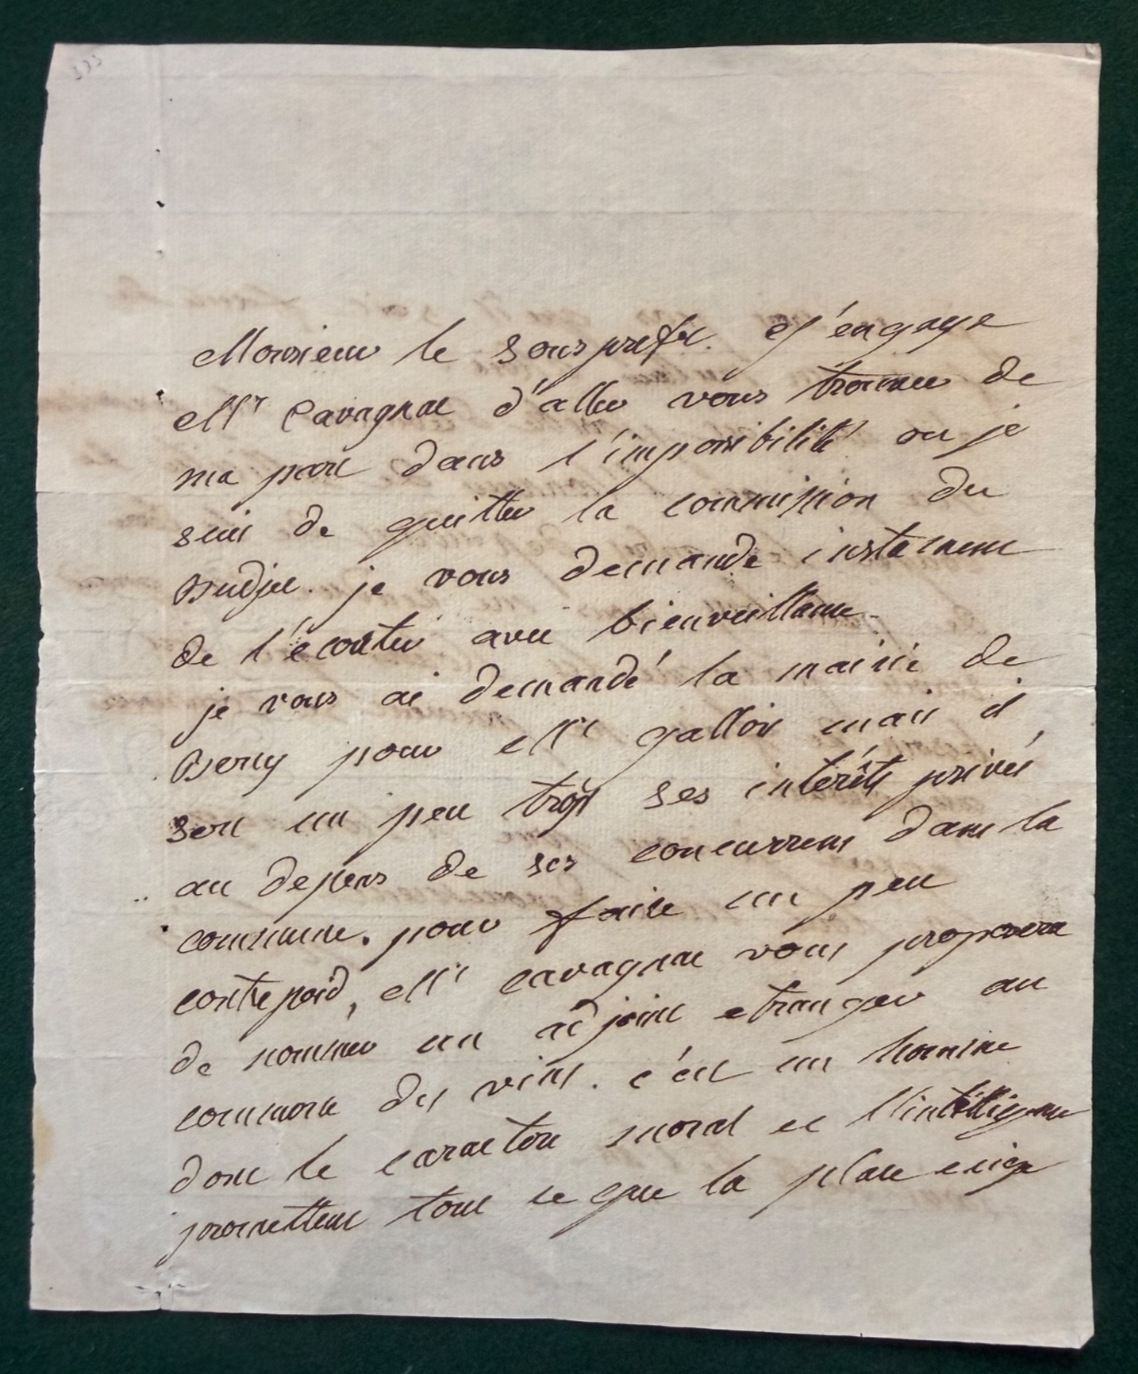 Monsieur le sous prefet. J'engage
Mr Cavagnac d'aller vous trouver de
ma part dans l'impossibilité ou je
suis de quitter la commission du
Budjet. je vous demande instament
de l'ecouter avec bienveillance.
je vous ai demandé la mairie de
Bercy pour Mr gallois mais il
sert un peu trop ses intérêts privés
au depens de ses concurrens dans la
commune. pour faire un peu
contrepoid, Mr cavagnac vous proposera
de nommer un adjoint etranger au
commerce des vins. c'est un homme
dont le caractere moral et l'intelligence
promettent tout ce que la place exige